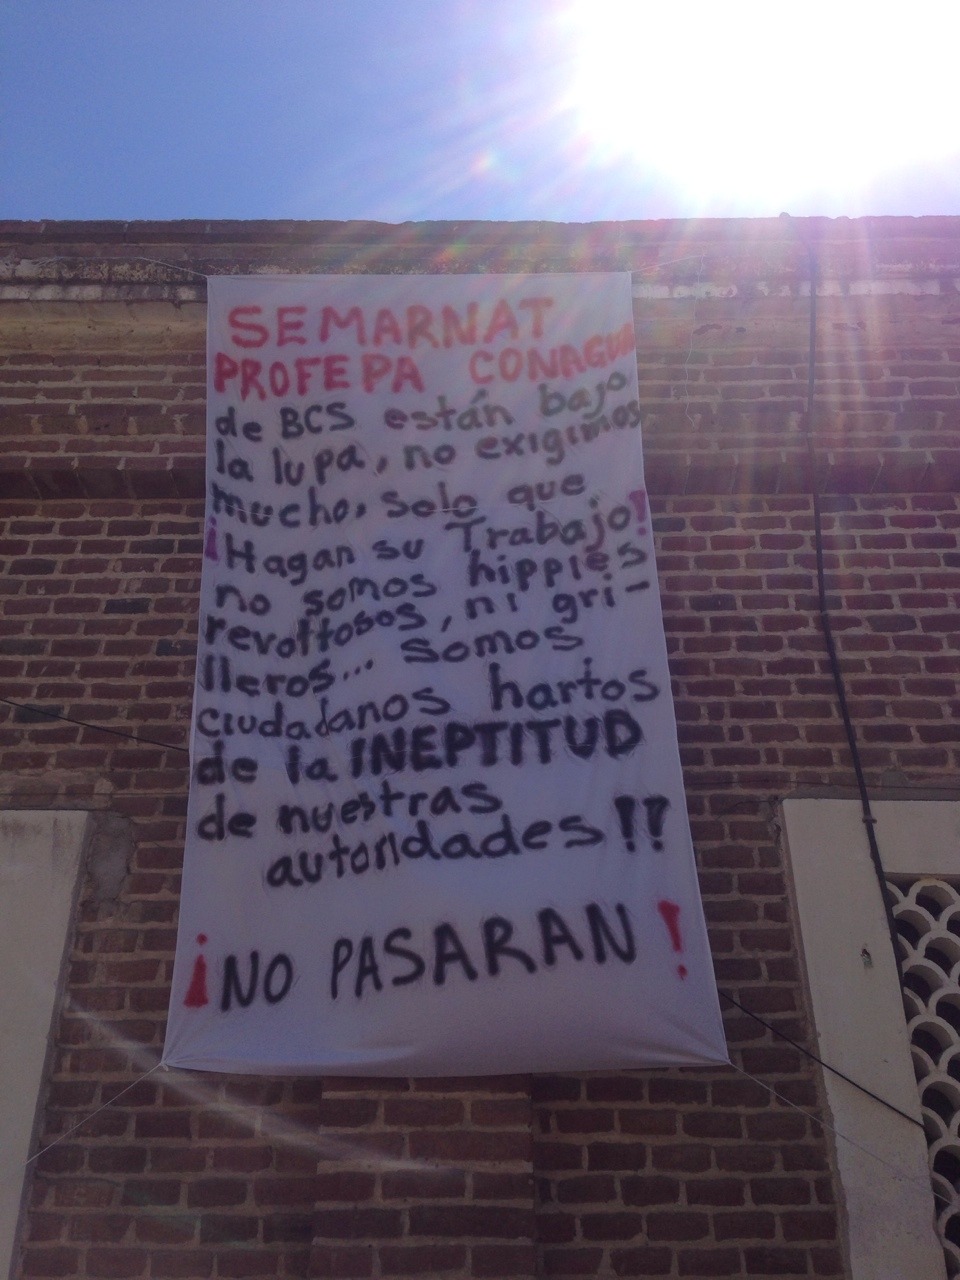 SEMARNAT
PROFEPA CONAGUA
de BCS están bajo
la lupa, no exigimos
mucho, solo que
¡Hagan su Trabajo!
no somos hippies
revoltosos, ni gri-
lleros... somos
ciudadanos hartos
de la INEPTITUD
de nuestras
autoridades!!
¡NO PASARAN!